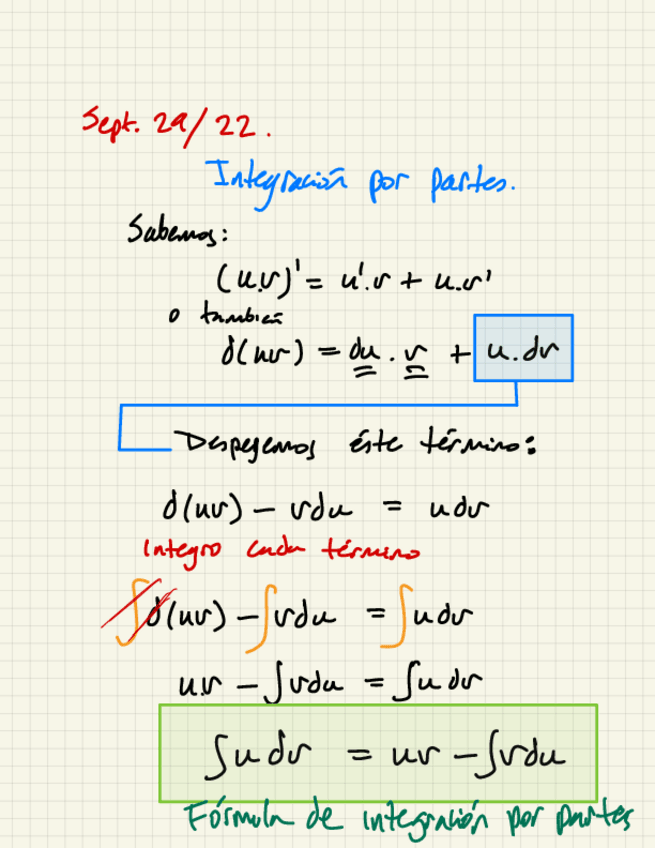 Sept. 29/22.
Integración por partes.
Sabemos:
(u.v)' = u'.v + u.v'
o también
d(uv) = du . v + u.dv
Despejemos éste término:
d(uv) - vdu = udv
Integro cada término
∫d(uv) - ∫vdu = ∫udv
uv - ∫vdu = ∫udv
∫udv = uv - ∫vdu
Fórmula de integración por partes